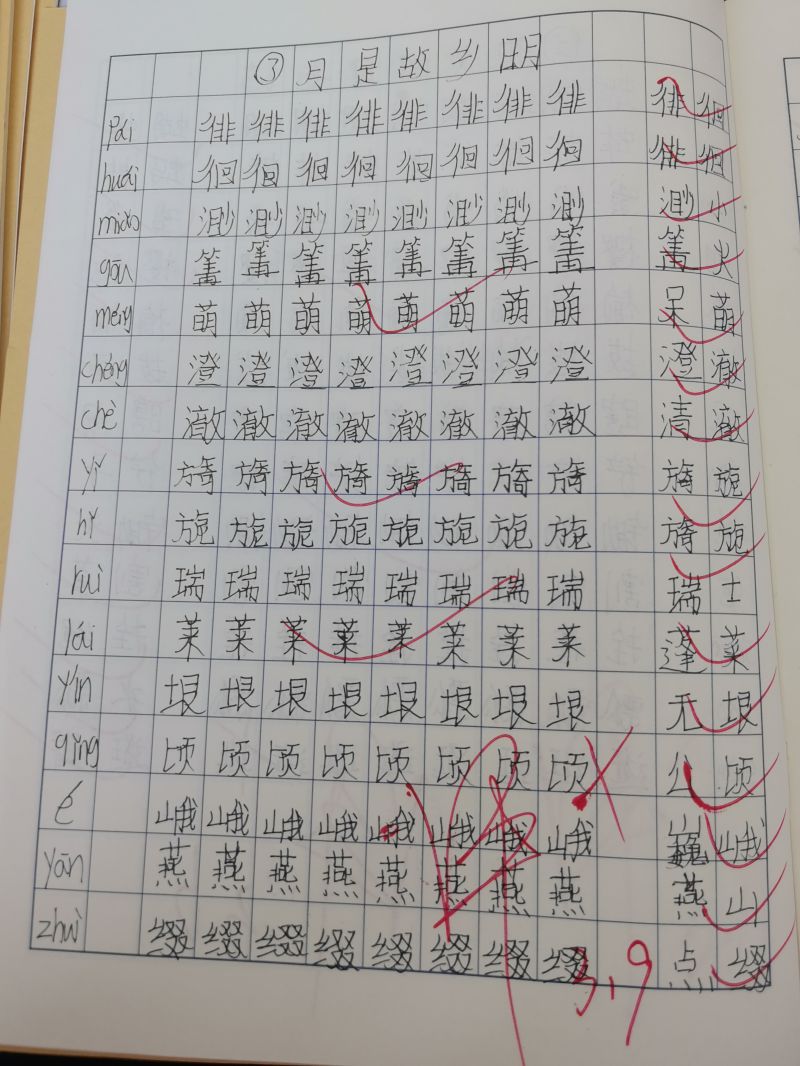 ③月是故乡明
pái 徘徘徘徘徘徘徘徘 徘徊
huái 徊徊徊徊徊徊徊徊 徘徊
miǎo 渺渺渺渺渺渺渺渺 渺小
gōu 篝篝篝篝篝篝篝篝 篝火
méng 萌萌萌萌萌萌萌萌 呆萌
chéng 澄澄澄澄澄澄澄澄 澄澈
chè 澈澈澈澈澈澈澈澈 清澈
yǐ 旖旖旖旖旖旖旖旖 旖旎
nǐ 旎旎旎旎旎旎旎旎 旖旎
ruì 瑞瑞瑞瑞瑞瑞瑞瑞 瑞士
lái 莱莱莱莱莱莱莱莱 蓬莱
yín 垠垠垠垠垠垠垠垠 无垠
qǐng 顷顷顷顷顷顷顷顷 公顷
é 峨峨峨峨峨峨峨峨 巍峨
yān 燕燕燕燕燕燕燕燕 燕山
zhuì 缀缀缀缀缀缀缀缀 点缀
3,9